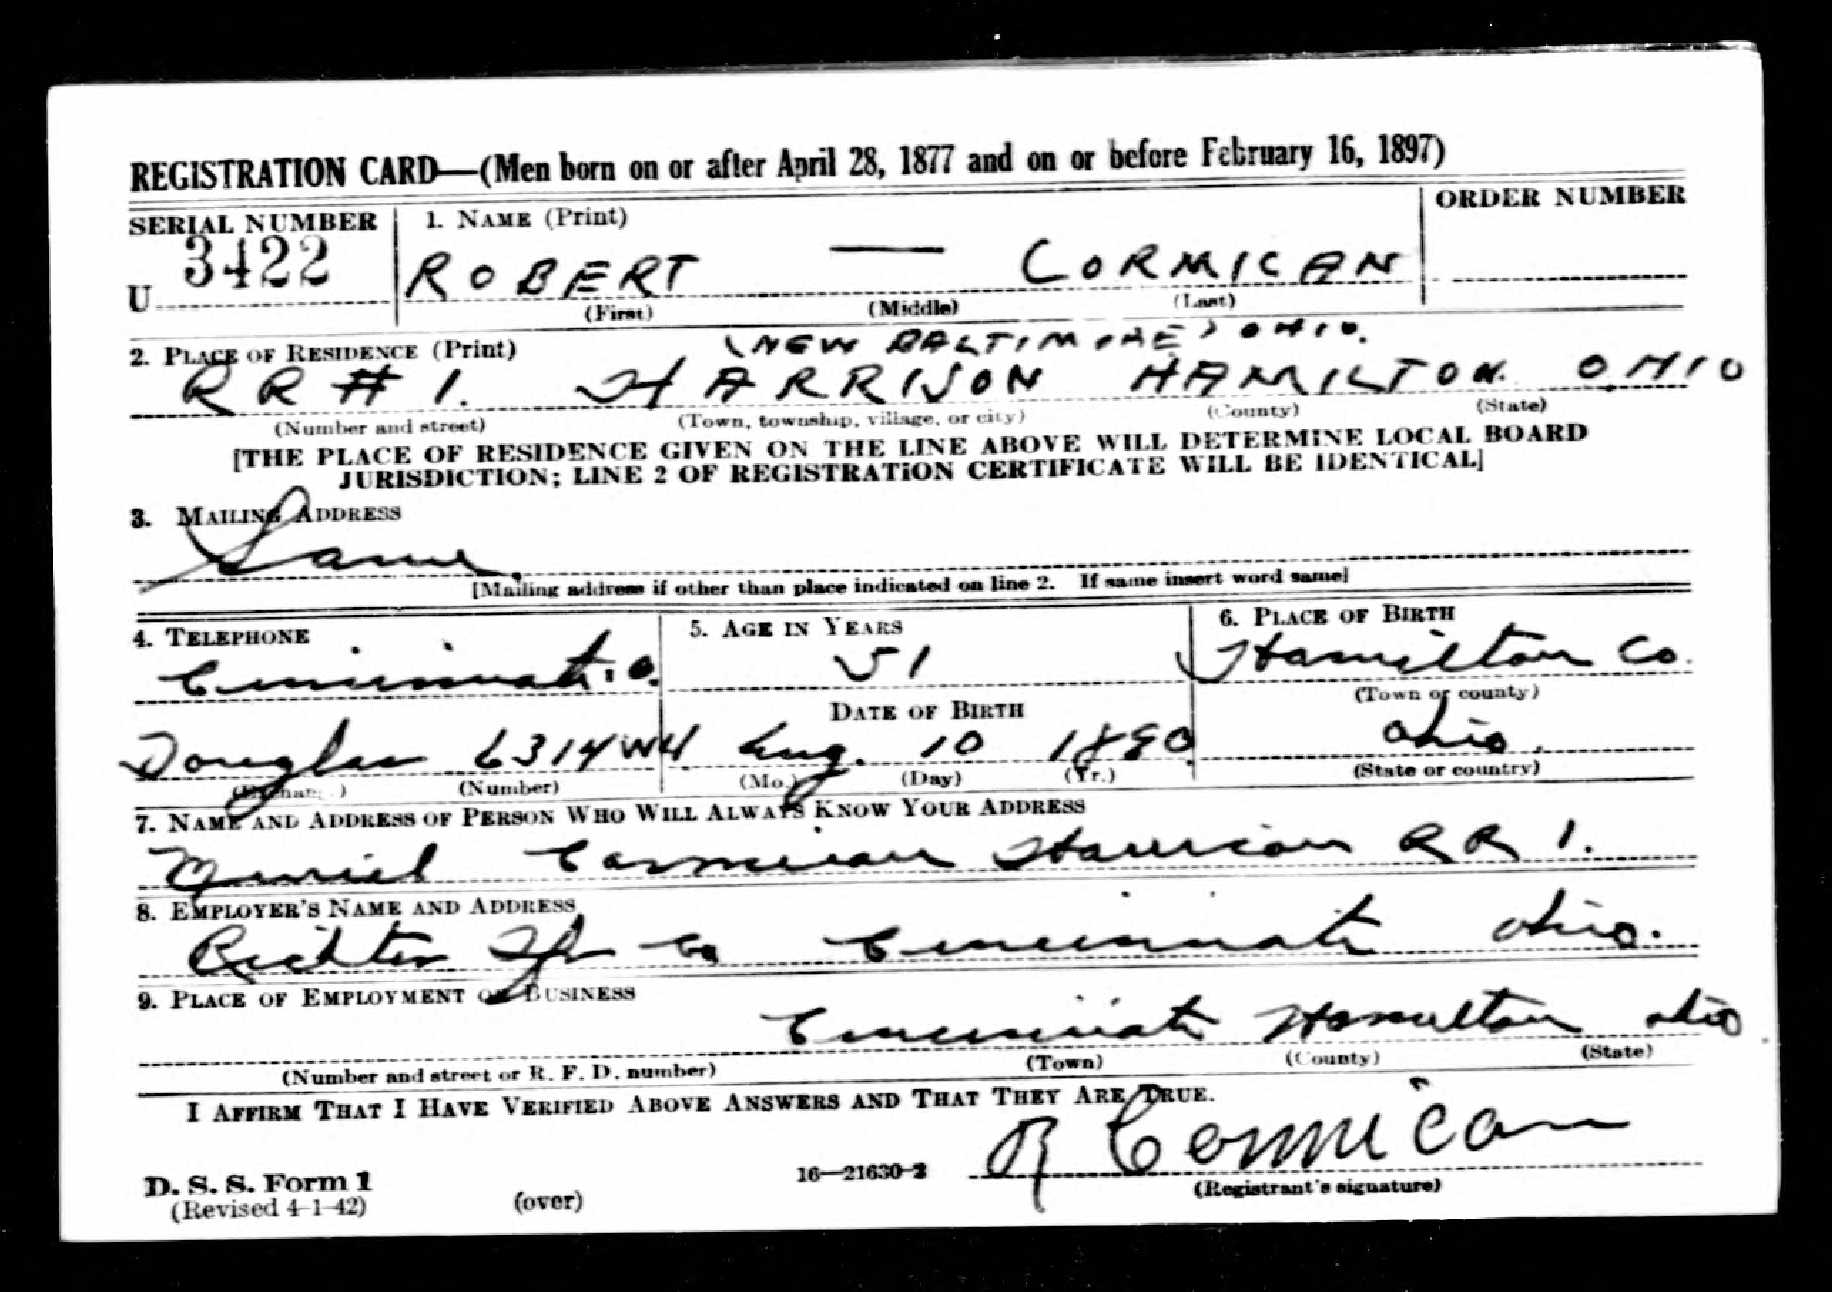 REGISTRATION CARD—(Men born on or after April 28, 1877 and on or before February 16, 1897)
SERIAL NUMBER 1. NAME (Print) ORDER NUMBER
U 3422 ROBERT — CORMICAN
(First) (Middle) (Last)
2. PLACE OF RESIDENCE (Print) (NEW BALTIMORE) OHIO.
RR # 1. HARRISON HAMILTON OHIO
(Number and street) (Town, township, village, or city) (County) (State)
[THE PLACE OF RESIDENCE GIVEN ON THE LINE ABOVE WILL DETERMINE LOCAL BOARD
JURISDICTION; LINE 2 OF REGISTRATION CERTIFICATE WILL BE IDENTICAL]
3. MAILING ADDRESS
Same.
[Mailing address if other than place indicated on line 2. If same insert word same]
4. TELEPHONE 5. AGE IN YEARS 6. PLACE OF BIRTH
Cincinnati. O. 51 Hamilton Co.
(Town or county)
DATE OF BIRTH
Douglas 6314W4 Aug. 10 1890 Ohio.
(Exchange) (Number) (Mo.) (Day) (Yr.) (State or country)
7. NAME AND ADDRESS OF PERSON WHO WILL ALWAYS KNOW YOUR ADDRESS
Muriel Cormican Harrison RR 1.
8. EMPLOYER'S NAME AND ADDRESS
Richter Co Cincinnati Ohio.
9. PLACE OF EMPLOYMENT OR BUSINESS
Cincinnati Hamilton Ohio
(Number and street or R. F. D. number) (Town) (County) (State)
I AFFIRM THAT I HAVE VERIFIED ABOVE ANSWERS AND THAT THEY ARE TRUE.
R Cormican
D. S. S. Form 1 16—21630-2 (Registrant's signature)
(Revised 4-1-42) (over)